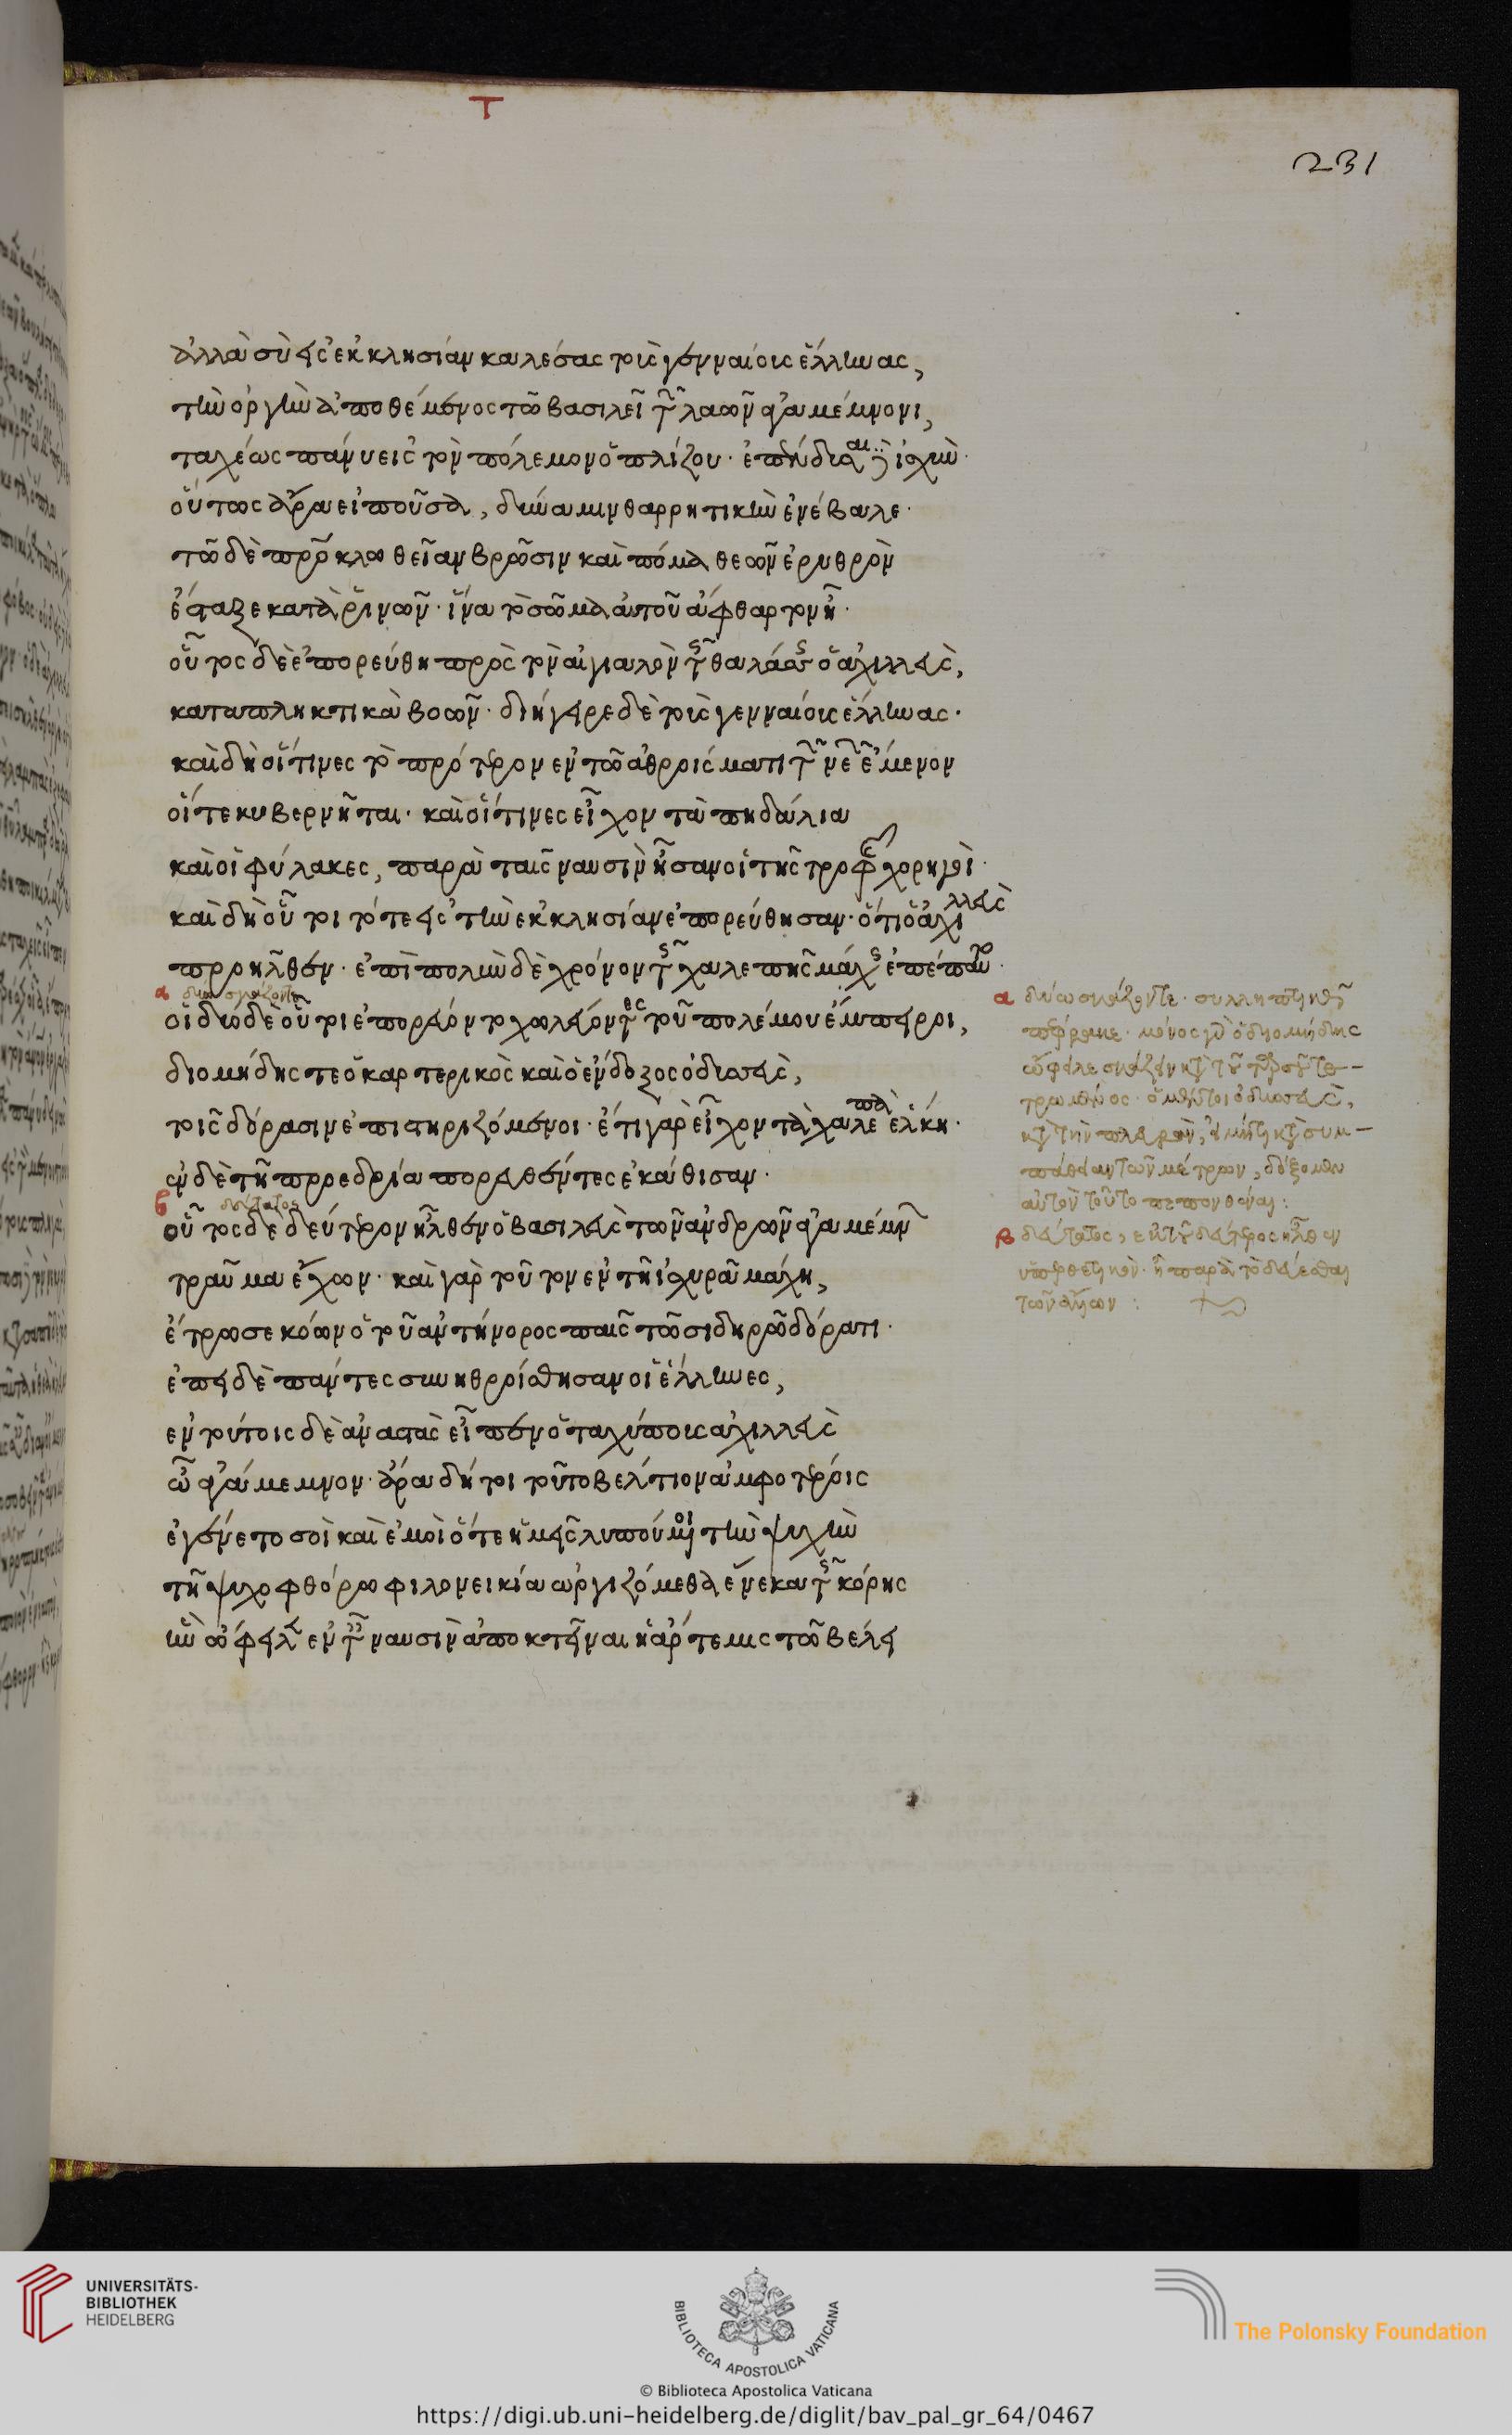 Τ
231
ἀλλὰ σὺ εἰς ἐκκλησίαν καλέσας τοὺς γενναίους ἕλληνας,
τὴν ὀργὴν ἀποθέμενος τῶ βασιλεῖ τῶν λαῶν ἀγαμέμνονι,
ταχέως πάνυ εἰς τὸν πόλεμον ὁπλίζου· ἐπένδυσαι δὲ ἰσχὺν·
οὕτως ἄρα εἰποῦσα, δύναμιν θαρρητικὴν ἐνέβαλε·
τῶ δὲ προκλω θείαν βρῶσιν καὶ πόμα θεῶν ἐρυθρὸν
ἔσταξε κατὰ ῥινῶν· ἵνα τὸ σῶμα αὐτοῦ ἄφθαρτον ἦ·
οὗτος δὲ ἐπορεύθη πρὸς τὸν αἰγιαλὸν τῆς θαλάσσης ὁ ἀχιλλεὺς,
καταπληκτικὰ βοῶν· διήγειρε δὲ τοὺς γενναίους ἕλληνας·
καὶ δὴ οἵτινες τὸ πρότερον ἐν τῶ ἀθροίσματι τῶν νεῶν ἔμενον
οἵ τε κυβερνῆται· καὶ οἵτινες εἶχον τὰ πηδάλια
καὶ οἱ φύλακες, παρὰ ταῖς ναυσὶν ἦσαν οἱ τῆς τροφῆς χορηγοὶ·
καὶ δὴ οὗτοι τότε εἰς τὴν ἐκκλησίαν ἐπορεύθησαν· ὅτι ὁ ἀχιλλεὺς
προῆλθεν· ἐπὶ πολὺν δὲ χρόνον τῆς χαλεπῆς μάχης ἐπέπαυτο·
α δύω σκάζοντε
οἱ δύο δὲ οὗτοι ἐπορεύοντο χωλεύοντες τοῦ πολέμου ἔμπειροι,
διομήδης τε ὁ καρτερικὸς καὶ ὁ ἔνδοξος ὀδυσσεὺς,
τοῖς δόρασιν ἐπιστηριζόμενοι· ἔτι γὰρ εἶχον τὰ χαλεπὰ ἕλκη·
ἐν δὲ τῆ προεδρία πορευθέντες ἐκάθισαν·
β δεύτατος
οὗτος δὲ δεύτερον ἦλθεν ὁ βασιλεὺς τῶν ἀνδρῶν ἀγαμέμνων
τραῦμα ἔχων· καὶ γὰρ τοῦτον ἐν τῆ ἰσχυρᾶ μάχη,
ἔτρωσε κόων ὁ τοῦ ἀντήνορος παῖς τῶ σιδηρῶ δόρατι·
ἐπεὶ δὲ πάντες συνηθροίσθησαν οἱ ἕλληνες,
ἐν τούτοις δὲ ἀναστὰς εἶπεν ὁ ταχύπους ἀχιλλεὺς
ὦ ἀγάμεμνον· ἄρα δή τοι τοῦτο βέλτιον ἀμφοτέροις
ἐγένετο σοὶ καὶ ἐμοὶ ὅτε ἡμεῖς λυπούμενοι τὴν ψυχὴν
τῆ ψυχοφθόρω φιλονεικία ὠργιζόμεθα ἕνεκα τῆς κόρης
ἣν ὤφειλεν ἐν ταῖς ναυσὶν ἀποκτεῖναι ἡ ἄρτεμις τῶ βέλει
α δύω σκάζοντε· συλληπτικῶς
μόνος γὰρ ὁ διομήδης
ὤφειλε σκάζειν
τρωμένος· ὀδυσσεὺς,
κατὰ τὴν πλευρὰν, εἰ μήτι κατὰ συμ-
πάθειαν τῶν μέτρων, δόξομεν
αὐτὸν τοῦτο πεπονθέναι:
β δεύτατος, δεύτερος ἦλθεν
ὑπερθετικὸν· ἢ παρὰ τὸ δεύεσθαι
τῶν ἄλλων :
UNIVERSITÄTS-
BIBLIOTHEK
HEIDELBERG
BIBLIOTECA APOSTOLICA VATICANA
The Polonsky Foundation
© Biblioteca Apostolica Vaticana
https://digi.ub.uni-heidelberg.de/diglit/bav_pal_gr_64/0467